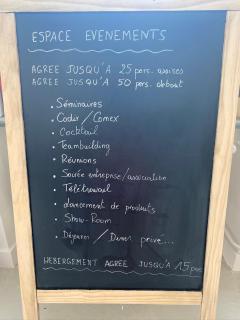 ESPACE EVENEMENTS
AGREE JUSQU'A 25 pers. assises
AGREE JUSQU'A 50 pers. debout
. Séminaires
. Codir / Comex
. Cocktail
. Teambuilding
. Réunions
. Soirée entreprise/association
. Télétravail
. Lancement de produits
. Show-Room
. Déjeuner / Diner privé...
HEBERGEMENT AGREE JUSQU'A 15 pers